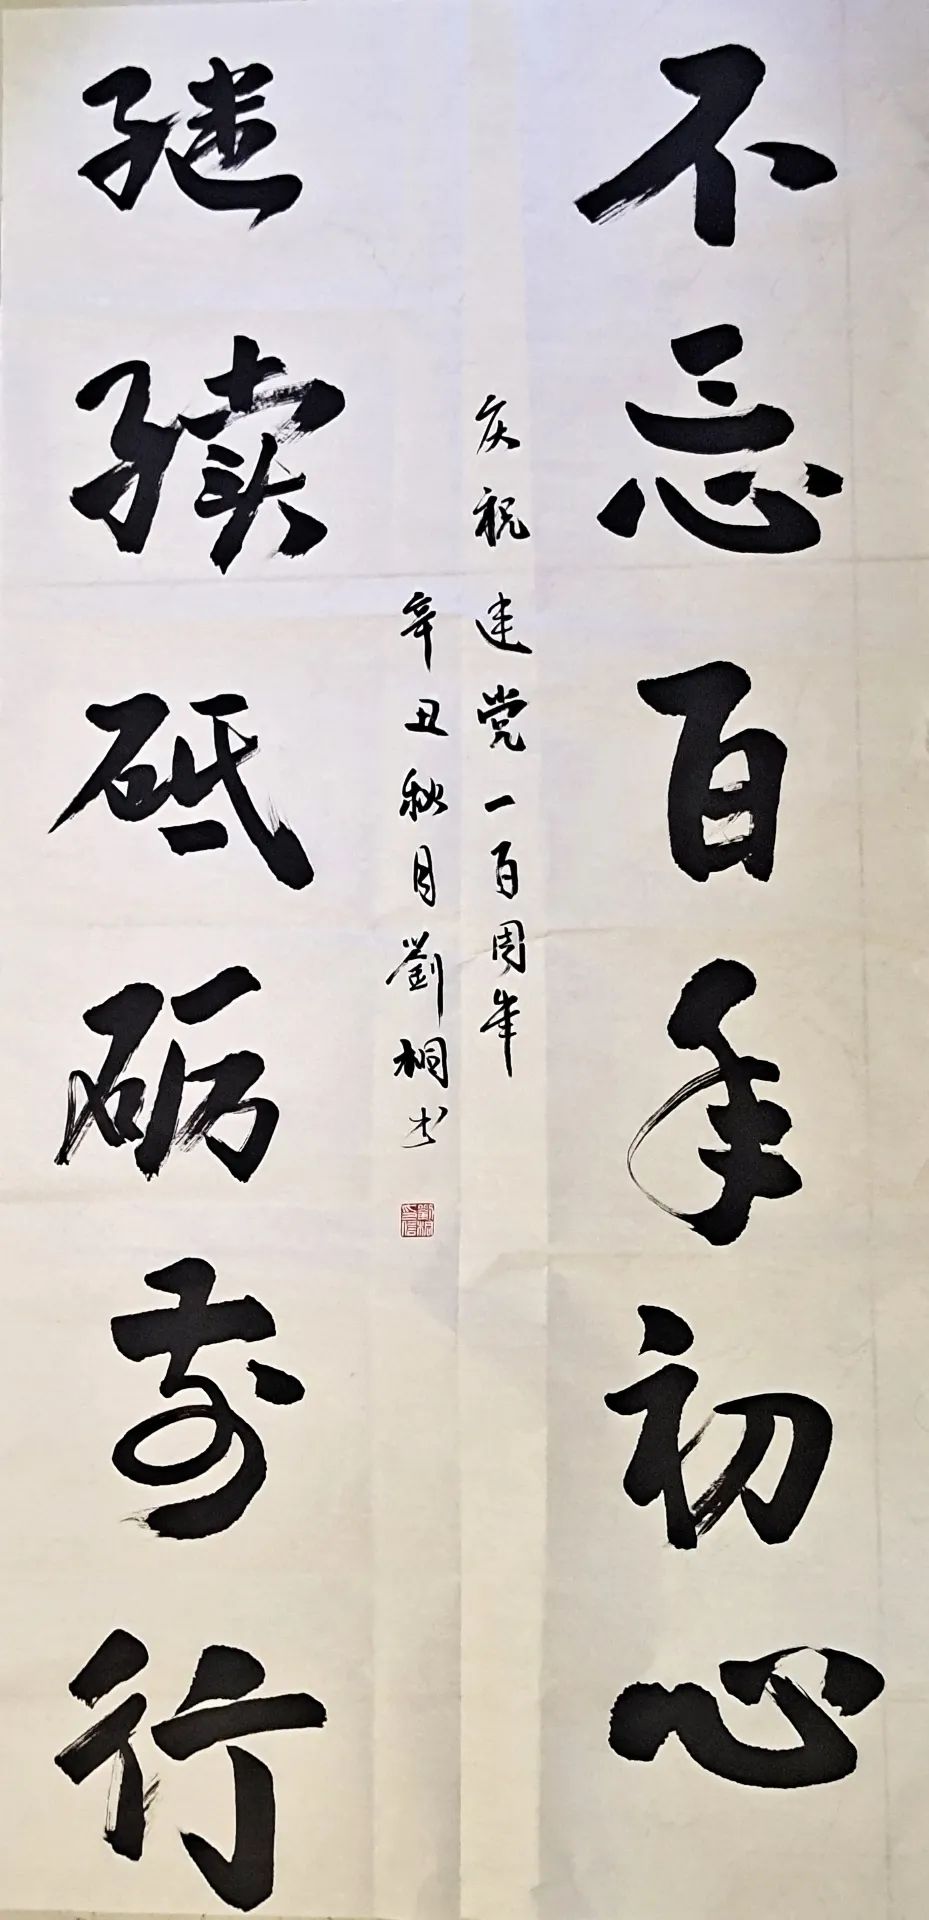 不忘百年初心
继续砥砺前行
庆祝建党一百周年
辛丑秋月劉桐书